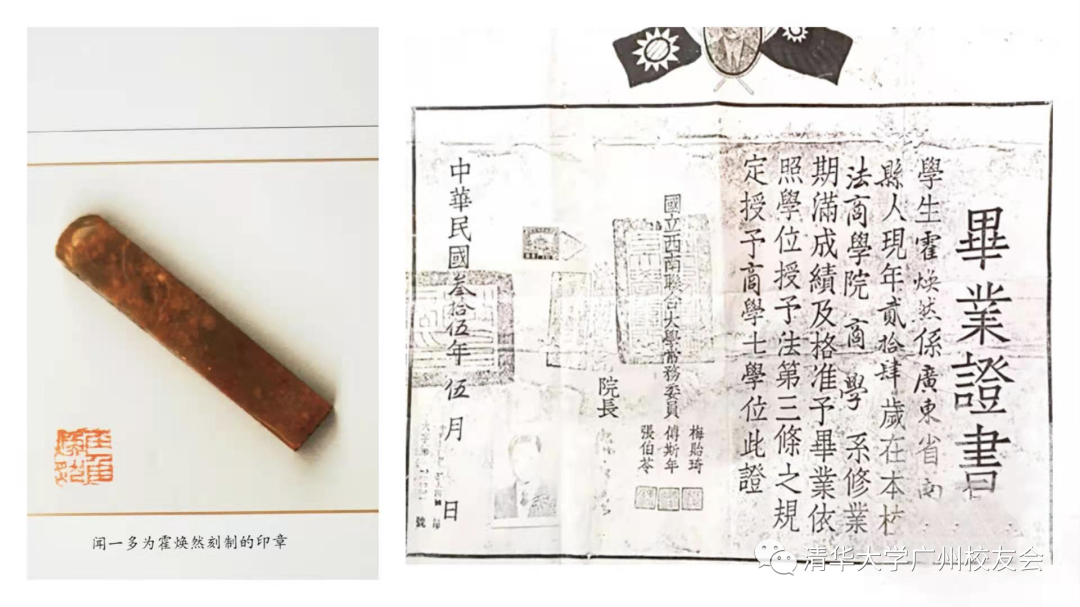 闻一多为霍焕然刻制的印章
畢業證書
學生霍煥然係廣東省南
縣人現年貳拾肆歲在本校
法商學院商學系修業
期滿成績及格准予畢業依
照學位授予法第三條之規
定授予商學士學位此證
國立西南聯合大學常務委員
梅貽琦
傅斯年
張伯苓
院長
中華民國叁拾伍年伍月日
號
清华大学广州校友会